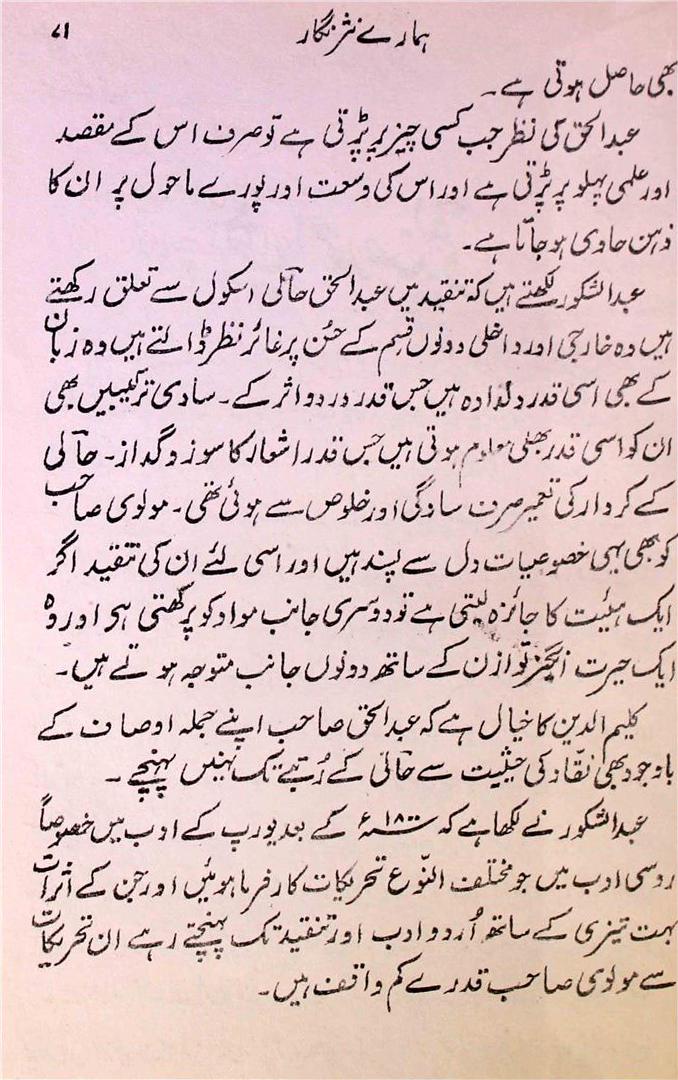 ہمارے نثر نگار ۷۱
بھی حاصل ہوتی ہے۔
عبدالحق کی نظر جب کسی چیز پر پڑتی ہے تو صرف اس کے مقصد
اور علمی پہلو پر پڑتی ہے اور اس کی وسعت اور پورے ماحول پر ان کا
ذہن حاوی ہو جاتا ہے۔
عبدالشکور لکھتے ہیں کہ تنقید میں عبدالحق حالی اسکول سے تعلق رکھتے
ہیں وہ خارجی اور داخلی دونوں قسم کے حسن پر غائر نظر ڈالتے ہیں وہ زبان
کے بھی اسی قدر دلدادہ ہیں جس قدر درد و اثر کے۔ سادی ترکیبیں بھی
ان کو اسی قدر بھلی معلوم ہوتی ہیں جس قدر اشعار کا سوز و گداز۔ حالی
کے کردار کی تعمیر صرف سادگی اور خلوص سے ہوئی تھی۔ مولوی صاحب
کو بھی یہی خصوصیات دل سے پسند ہیں اور اسی لئے ان کی تنقید اگر
ایک ہئیت کا جائزہ لیتی ہے تو دوسری جانب مواد کو پرکھتی ہی اور وہ
ایک حیرت انگیز توازن کے ساتھ دونوں جانب متوجہ ہوتے ہیں۔
کلیم الدین کا خیال ہے کہ عبدالحق صاحب اپنے جملہ اوصاف کے
باوجود بھی نقّاد کی حیثیت سے حالی کے رُتبے تک نہیں پہنچے۔
عبدالشکور نے لکھا ہے کہ ۱۸۰۰ء کے بعد یورپ کے ادب میں خصوصاً
روسی ادب میں جو مختلف النّوع تحریکات کارفرما ہوئیں اور جن کے اثرات
بہت تیزی کے ساتھ اُردو ادب اور تنقید تک پہنچتے رہے ان تحریکات
سے مولوی صاحب قدرے کم واقف ہیں۔